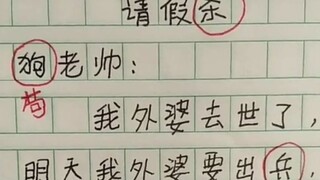 请假杀
狗老帅：
苟
我外婆去世了，
明天我外婆要出兵，